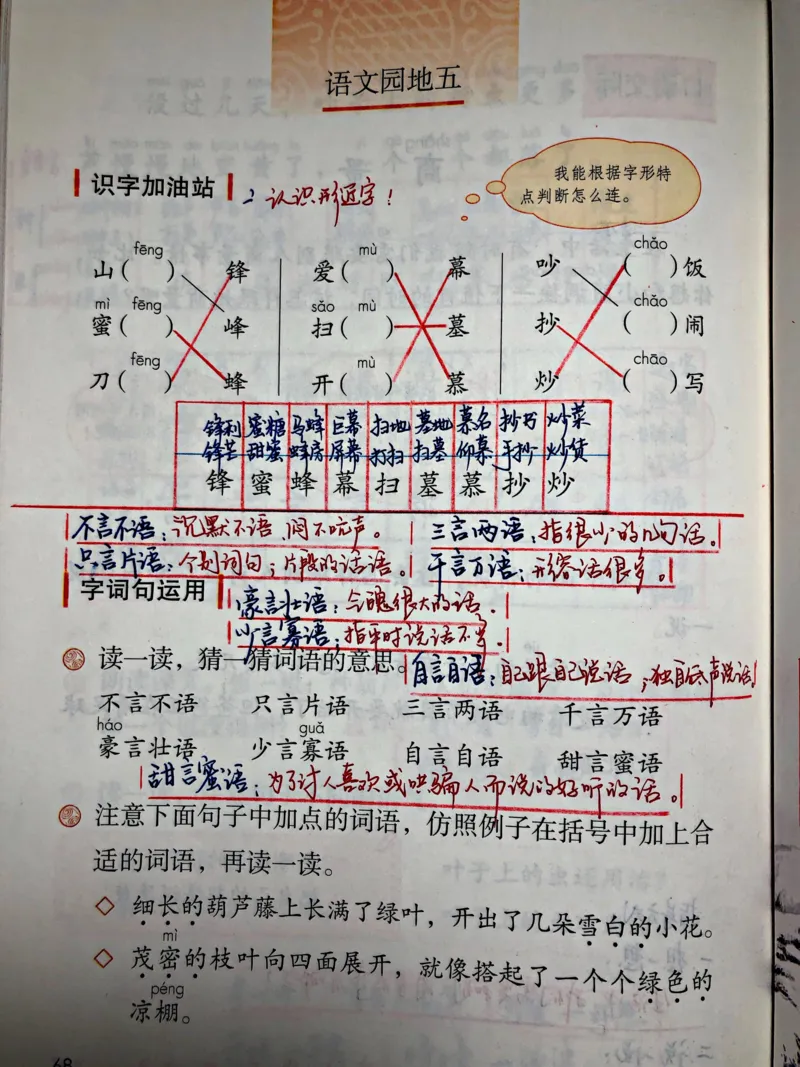 语文园地五
识字加油站
2 认识形近字！
我能根据字形特
点判断怎么连。
fēng mù chǎo
山( ) 锋 爱( ) 幕 吵 ( )饭
mì fēng sǎo mù chǎo
蜜( ) 峰 扫( ) 墓 抄 ( )闹
fēng mù chāo
刀( ) 蜂 开( ) 慕 炒 ( )写
锋利 蜜糖 马蜂 巨幕 扫地 墓地 慕名 抄书 炒菜
锋芒 甜蜜 蜂房 屏幕 打扫 扫墓 仰慕 手抄 炒货
锋 蜜 蜂 幕 扫 墓 慕 抄 炒
不言不语：沉默不语,闷不吭声。 三言两语：指很少的几句话。
只言片语：个别词句；片段的话语。 千言万语：形容话很多。
字词句运用
豪言壮语：气魄很大的话。
少言寡语：指平时说话不多。
读一读，猜一猜词语的意思。
自言自语：自己跟自己说话；独自低声说话
不言不语 只言片语 三言两语 千言万语
háo guǎ
豪言壮语 少言寡语 自言自语 甜言蜜语
甜言蜜语：为了讨人喜欢或哄骗人而说的好听的话。
注意下面句子中加点的词语，仿照例子在括号中加上合
适的词语，再读一读。
细长的葫芦藤上长满了绿叶，开出了几朵雪白的小花。
mì
茂密的枝叶向四面展开，就像搭起了一个个绿色的
péng
凉棚。
68